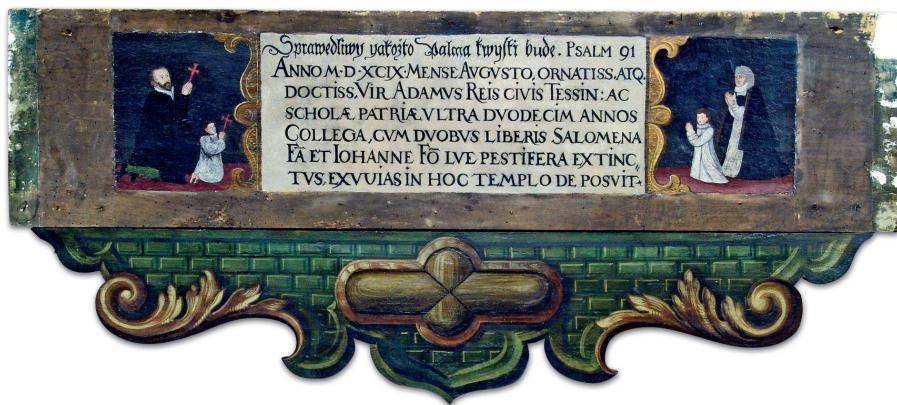 Sprawedliwy yakožto Palma kwysti bude. PSALM 91
ANNO M·D·XCIX·MENSE AVGVSTO, ORNATISS. ATQ.
DOCTISS. VIR ADAMVS REIS CIVIS TESSIN: AC
SCHOLÆ PATRIÆ VLTRA DVODECIM ANNOS
COLLEGA, CVM DVOBVS LIBERIS SALOMENA
FĀ ET IOHANNE FŌ LVE PESTIFERA EXTINC,,
TVS, EXVVIAS IN HOC TEMPLO DEPOSVIT·